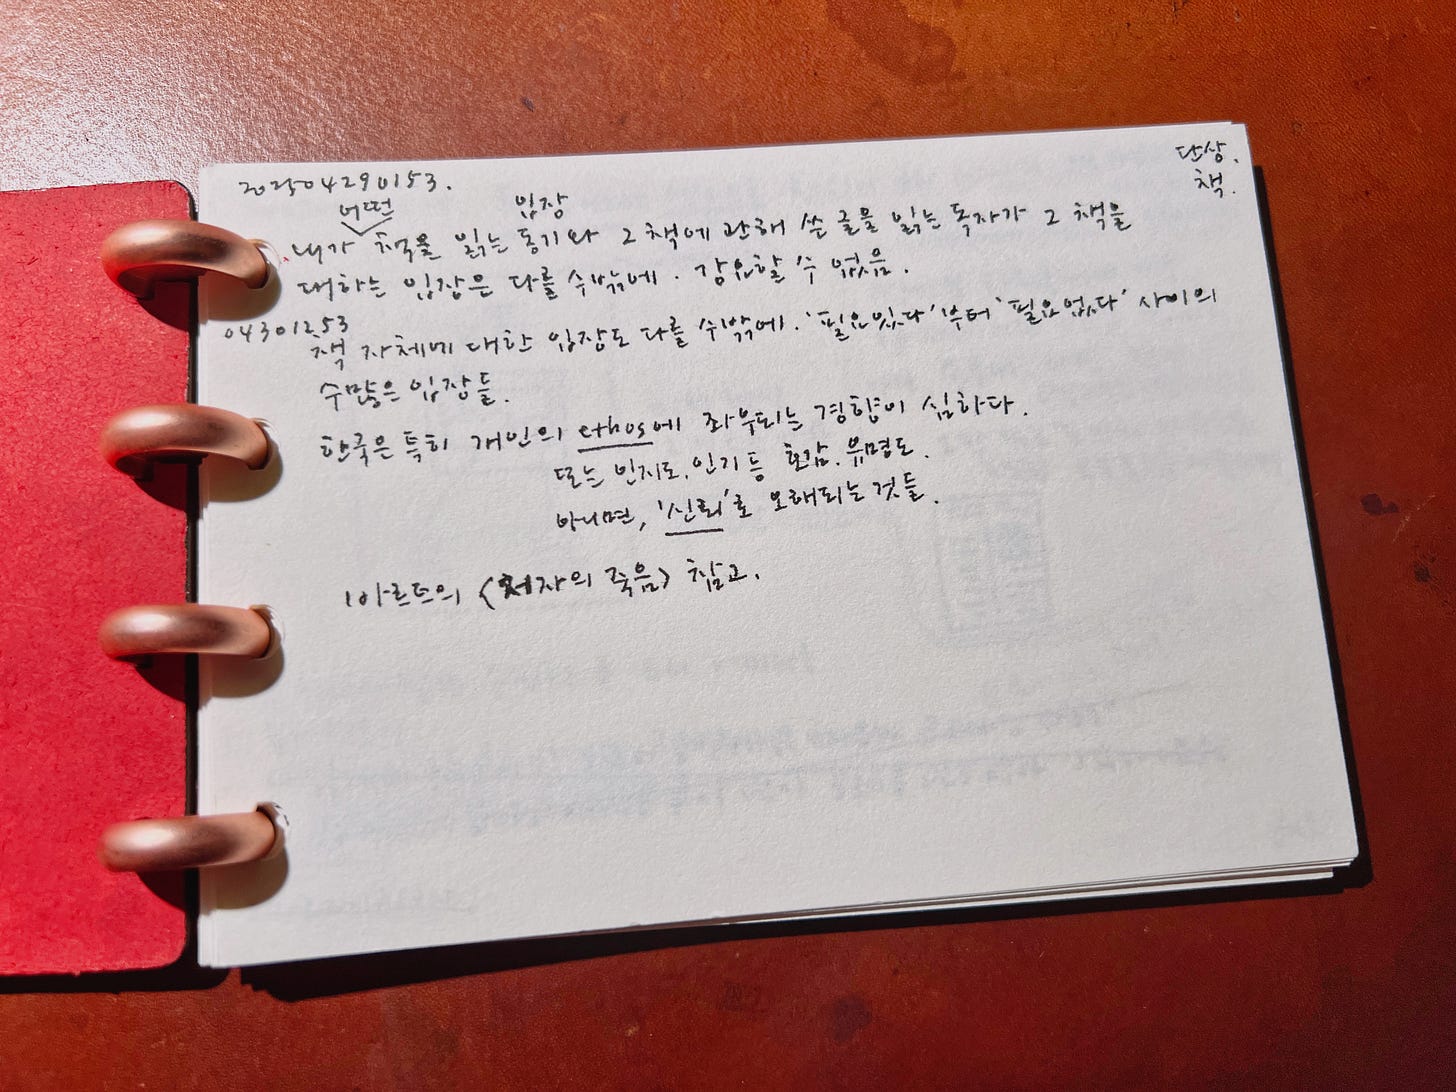 202504290153.
단상.
책.
어떤
입장
내가 책을 읽는 동기와 그 책에 관해 쓴 글을 읽는 독자가 그 책을
대하는 입장은 다를 수밖에. 강요할 수 없음.
04301253
책 자체에 대한 입장도 다를 수밖에. '필요있다'부터 '필요없다' 사이의
수많은 입장들.
한국은 특히 개인의 ethos에 좌우되는 경향이 심하다.
또는 인지도, 인기 등 호감. 유명도.
아니면, '신뢰'로 오해되는 것들.
바르트의 <저자의 죽음> 참고.